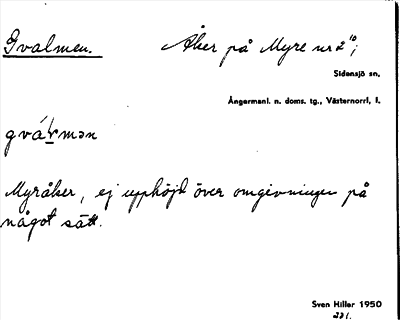 Gvalmen. Åker på Myre nr 2¹⁰;
Sidensjö sn.
Ångermanl. n. doms. tg., Västernorrl. l.
Myråker, ej upphöjd över omgivningen på
något sätt.
Sven Hiller 1950
221.